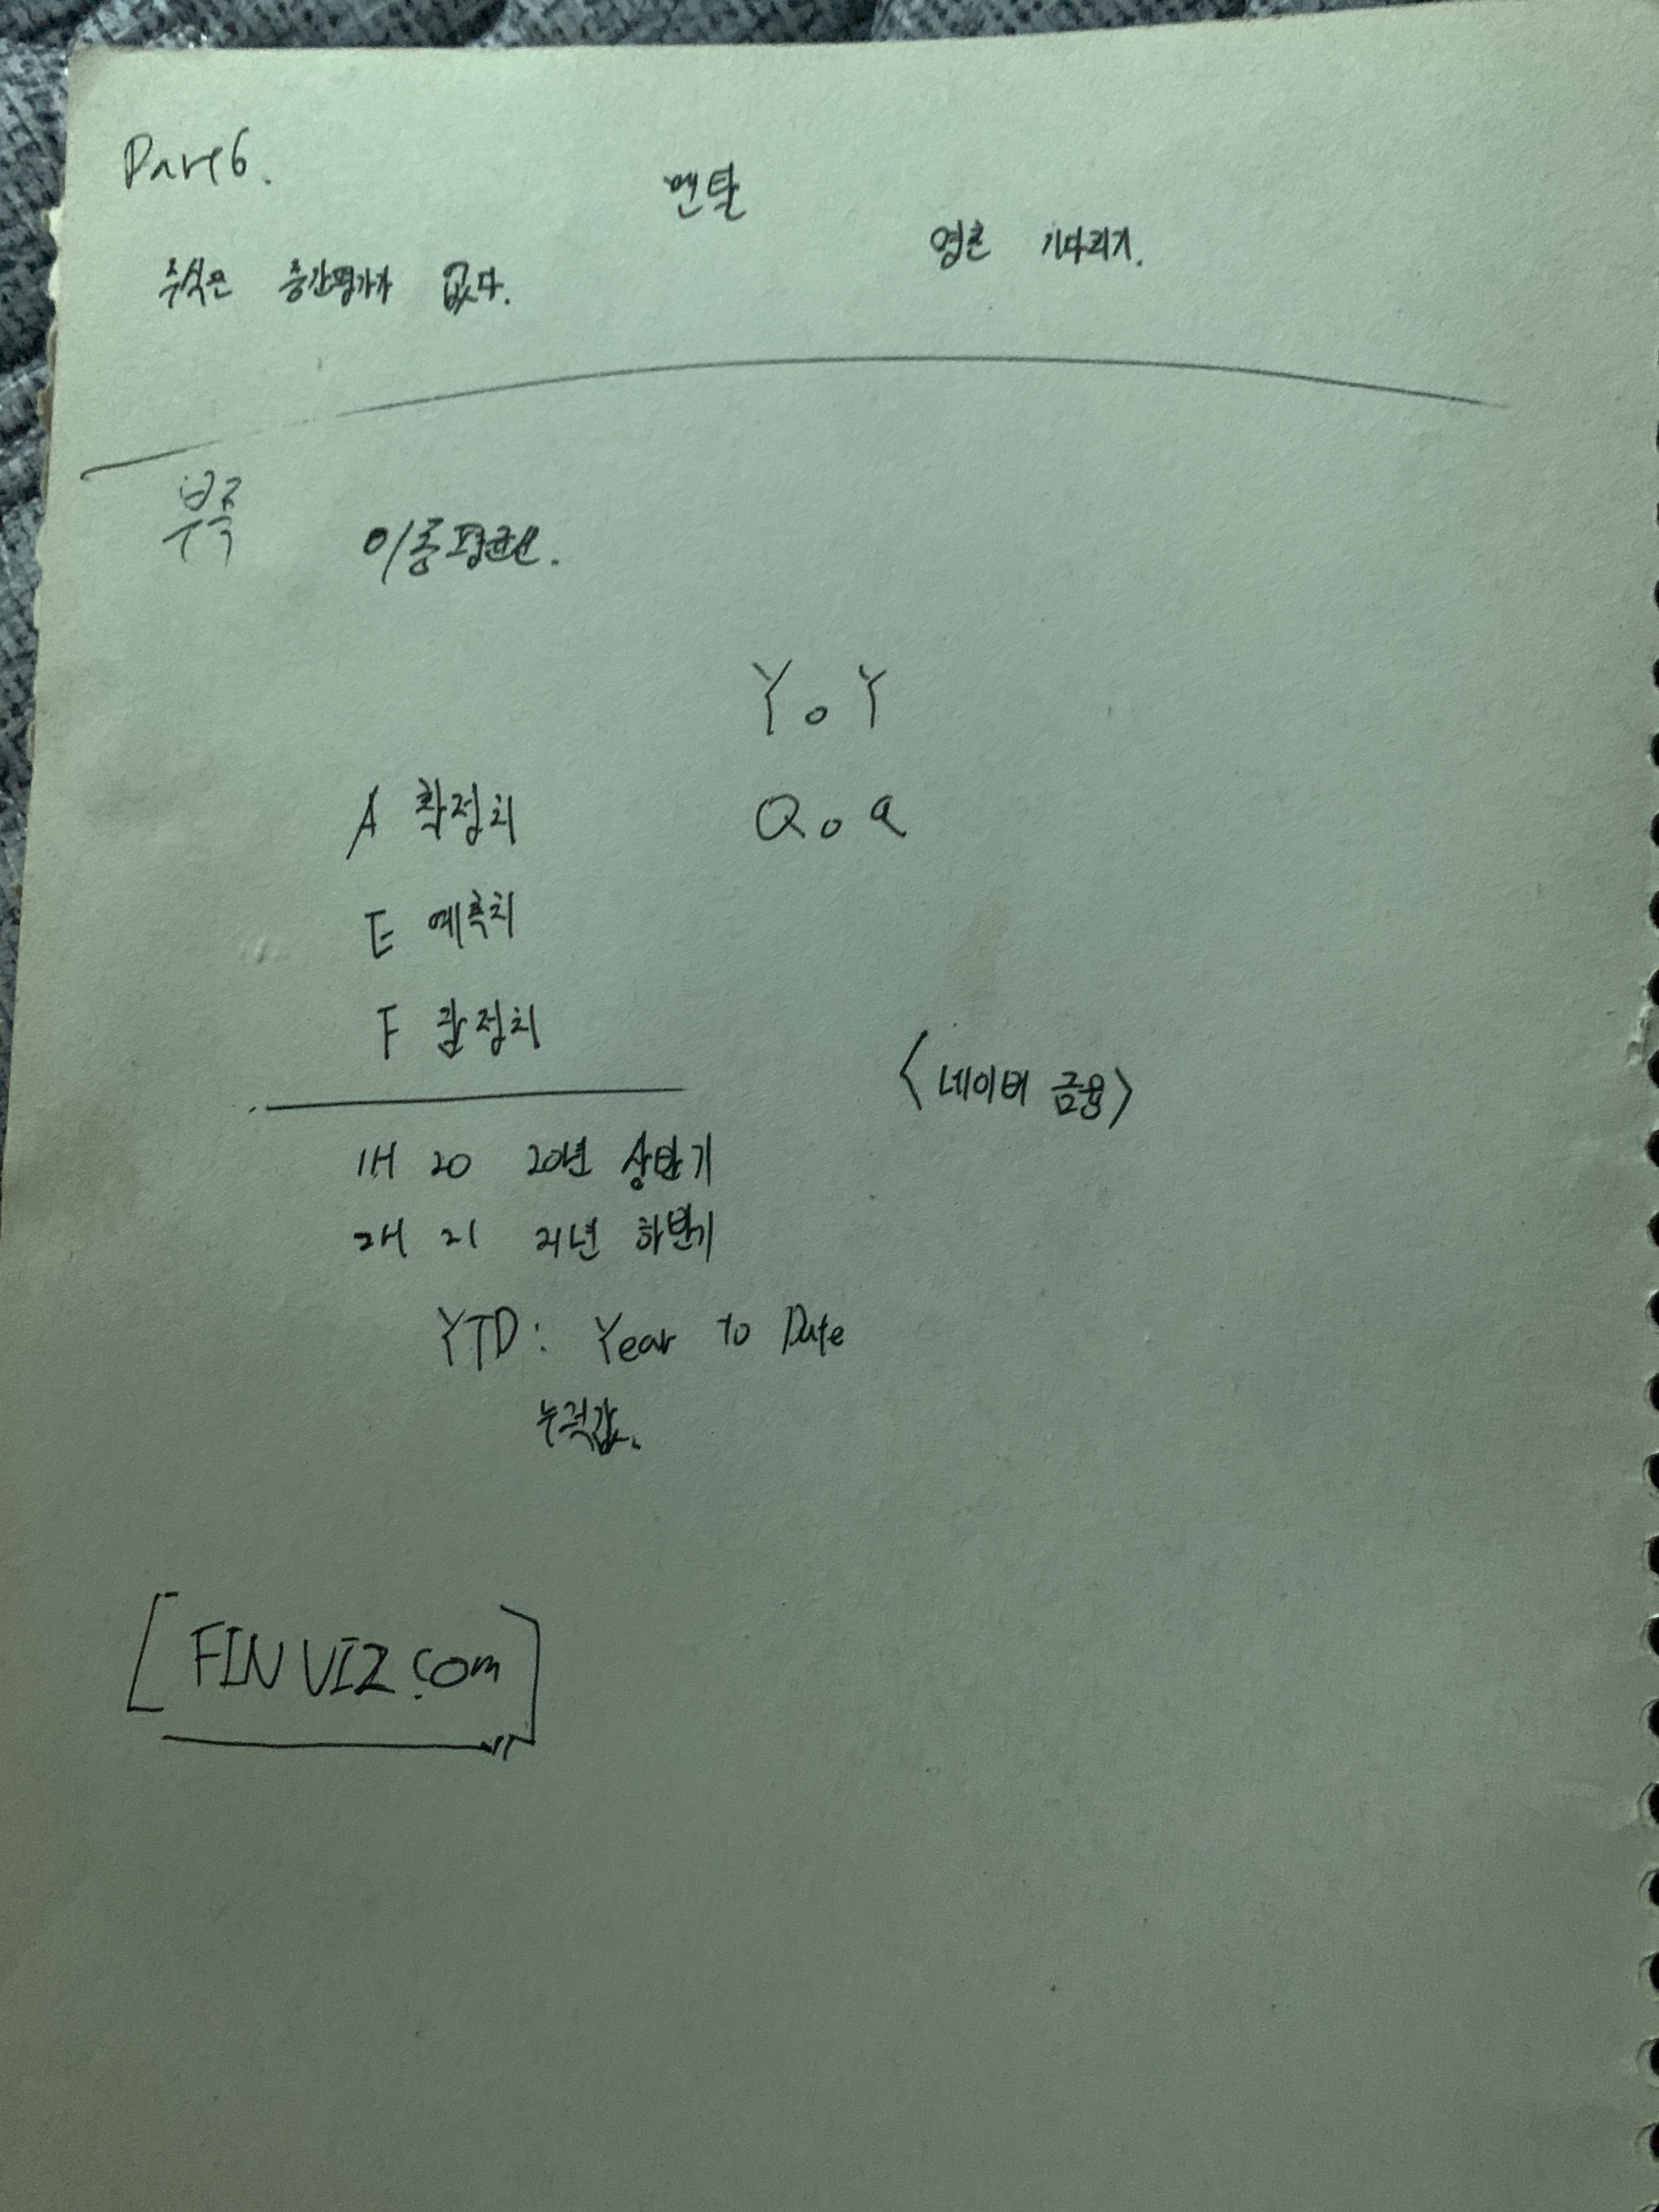 Part 6.
멘탈
영혼 기다리기.
주식은 중간평가가 없다.
부족
이동평균선.
YoY
A 확정치
QoQ
E 예측치
F 잠정치
<네이버 금융>
1H 20 20년 상반기
2H 21 21년 하반기
YTD: Year to Date
누적값.
[FINVIZ.com]